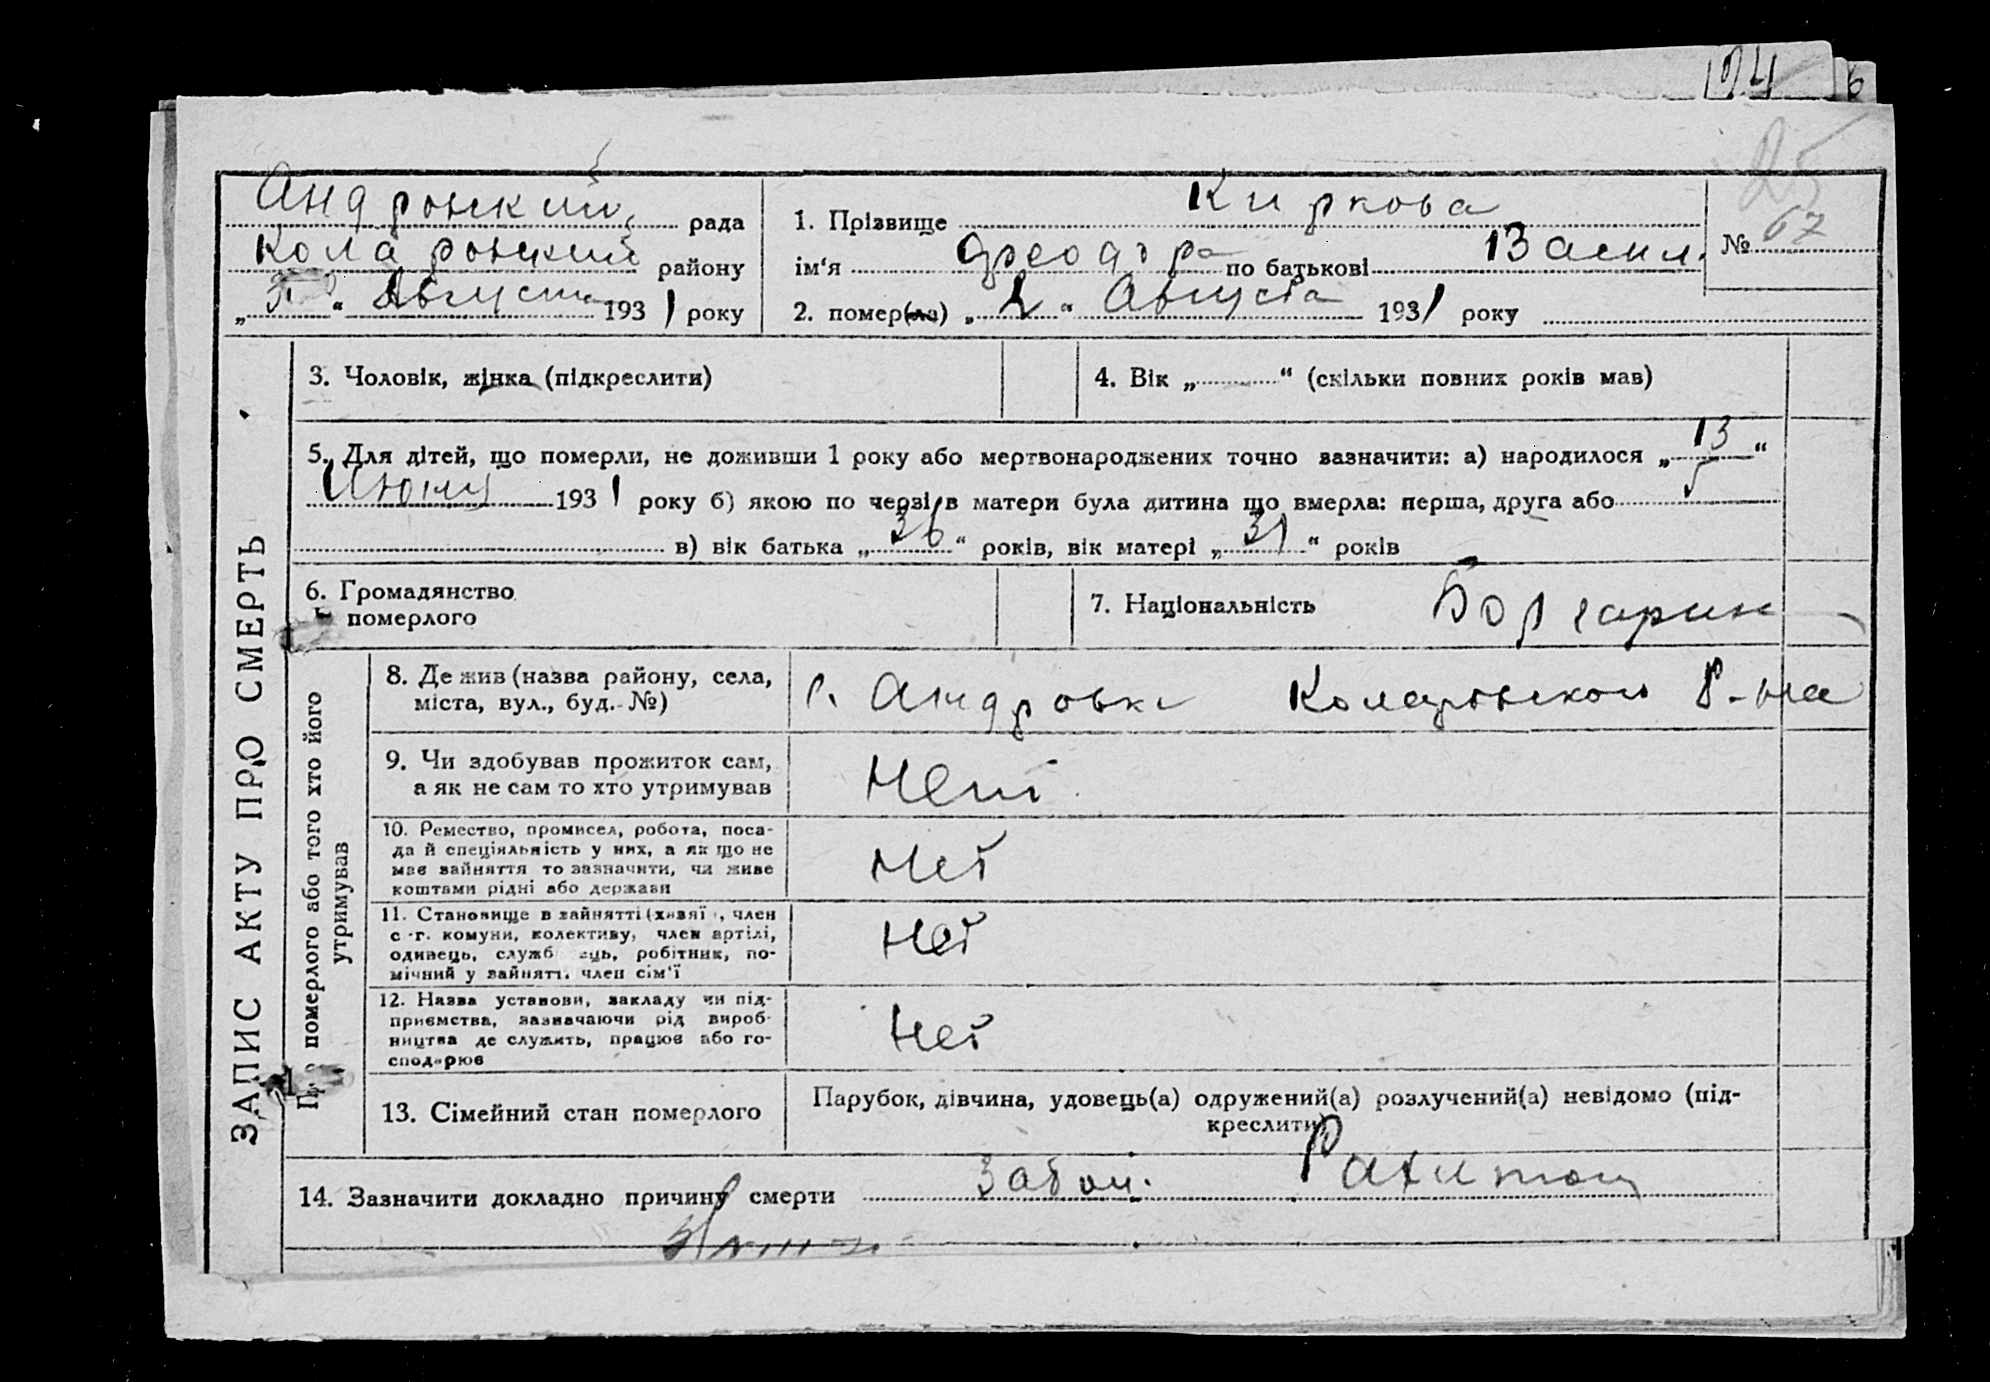 24 6
25
Андровский рада
Коларовский району
„3" Августа 1931 року
1. Прізвище Киркова
ім'я Феодора по батькові Васил.
2. помер(ла) „2" Августа 1931 року
№ 67
3. Чоловік, жінка (підкреслити)
4. Вік „ " (скільки повних років мав)
5. Для дітей, що померли, не доживши 1 року або мертвонароджених точно зазначити: а) народилося „13"
Июня 1931 року б) якою по черзі в матери була дитина що вмерла: перша, друга або 5
в) вік батька „36" років, вік матері „31" років
6. Громадянство
померлого
7. Національність Болгарин
ЗАПИС АКТУ ПРО СМЕРТЬ
Про померлого або того хто його
утримував
8. Де жив (назва району, села,
міста, вул., буд. №)
с. Андровка Коларовского р-на
9. Чи здобував прожиток сам,
а як не сам то хто утримував
Нет
10. Ремество, промисел, робота, поса-
да й спеціяльність у них, а як що не
має зайняття то зазначити, чи живе
коштами рідні або держави
Нет
11. Становище в зайнятті (хазяї , член
с.-г. комуни, колективу, член артілі,
одинець, служб ець, робітник, по-
мічний у зайнятт. член сім'ї
Нет
12. Назва установи, закладу чи під-
приємства, зазначаючи рід вироб-
ництва де служить, працює або го-
сподарює
Нет
13. Сімейний стан померлого
Парубок, дівчина, удовець(а) одружений(а) розлучений(а) невідомо (під-
креслити)
14. Зазначити докладно причину смерти Забол. Рахитом